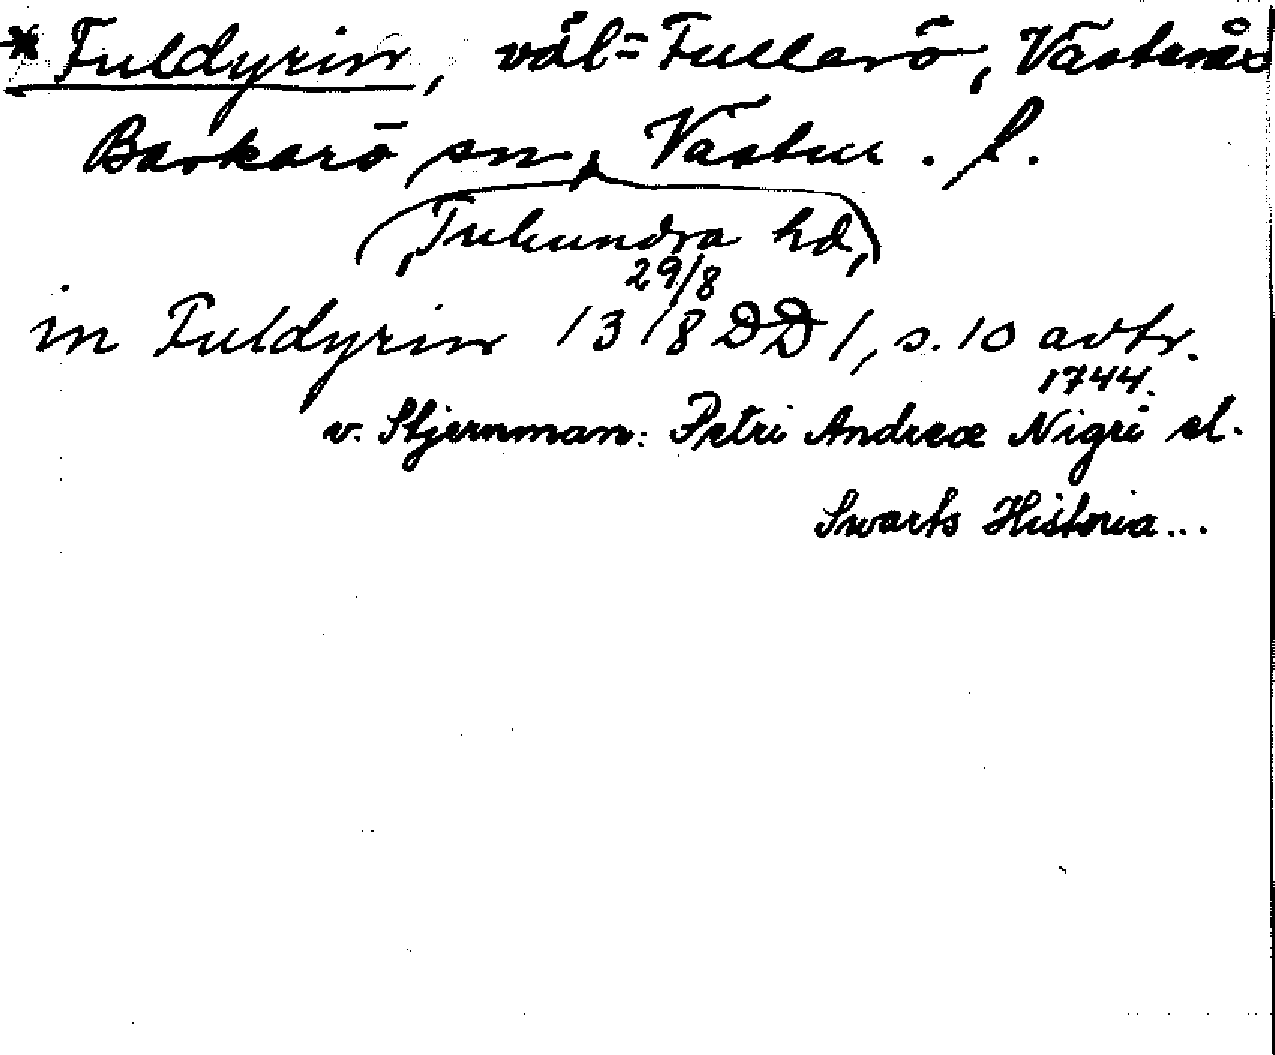 * Fuldyrin, väl = Fullerö, Västerås
Barkarö sn, Västm. l.
(, Tuhundra hd, )
29/8
in Fuldyrin 1318 DD 1, s. 10 avtr.
1744.
v. Stjernman: Petri Andreæ Nigri el.
Swarts Historia...